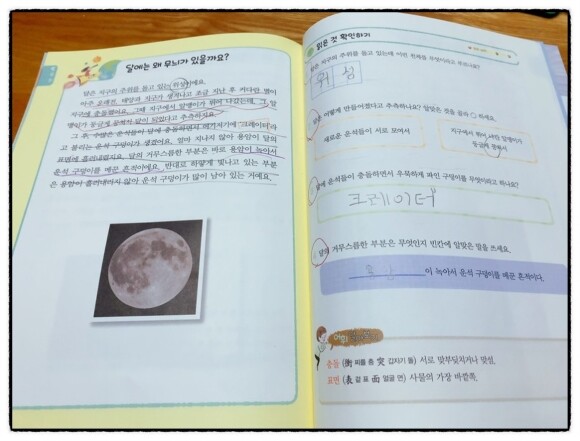 달에는 왜 무늬가 있을까요?
달은 지구의 주위를 돌고 있는 위성이에요.
아주 오래전, 태양과 지구가 생겨나고 조금 지난 후 커다란 별이
지구에 충돌했어요. 그때 지구에서 알맹이가 튀어 나갔는데, 그 알
맹이가 둥글게 뭉쳐져 달이 되었다고 추측하지요.
그 후, 수많은 운석들이 달에 충돌하면서 여기저기에 '크레이터'라
고 불리는 운석 구덩이가 생겼어요. 얼마 지나지 않아 용암이 녹아서
표면에 흘러내렸지요. 달의 거무스름한 부분은 바로 용암이 녹아서
운석 구덩이를 메꾼 흔적이에요. 반대로 하얗게 빛나고 있는 부분
은 용암이 흘러내리지 않아 운석 구덩이가 많이 남아 있는 거예요.
읽은 것 확인하기
달은 지구의 주위를 돌고 있는데 이런 천체를 무엇이라고 부르나요?
위 성
달은 어떻게 만들어졌다고 추측하나요? 알맞은 것을 골라 ○ 하세요.
새로운 운석들이 서로 모여서
지구에서 튀어 나간 알맹이가
둥글게 뭉쳐서
달에 운석들이 충돌하면서 우묵하게 파인 구덩이를 무엇이라고 하나요?
크레이터
달의 거무스름한 부분은 무엇인지 빈칸에 알맞은 말을 쓰세요.
용암 이 녹아서 운석 구덩이를 메꾼 흔적이다.
충돌 (衝 찌를 충 突 갑자기 돌) 서로 맞부딪치거나 맞섬.
표면 (表 겉 표 面 얼굴 면) 사물의 가장 바깥쪽.